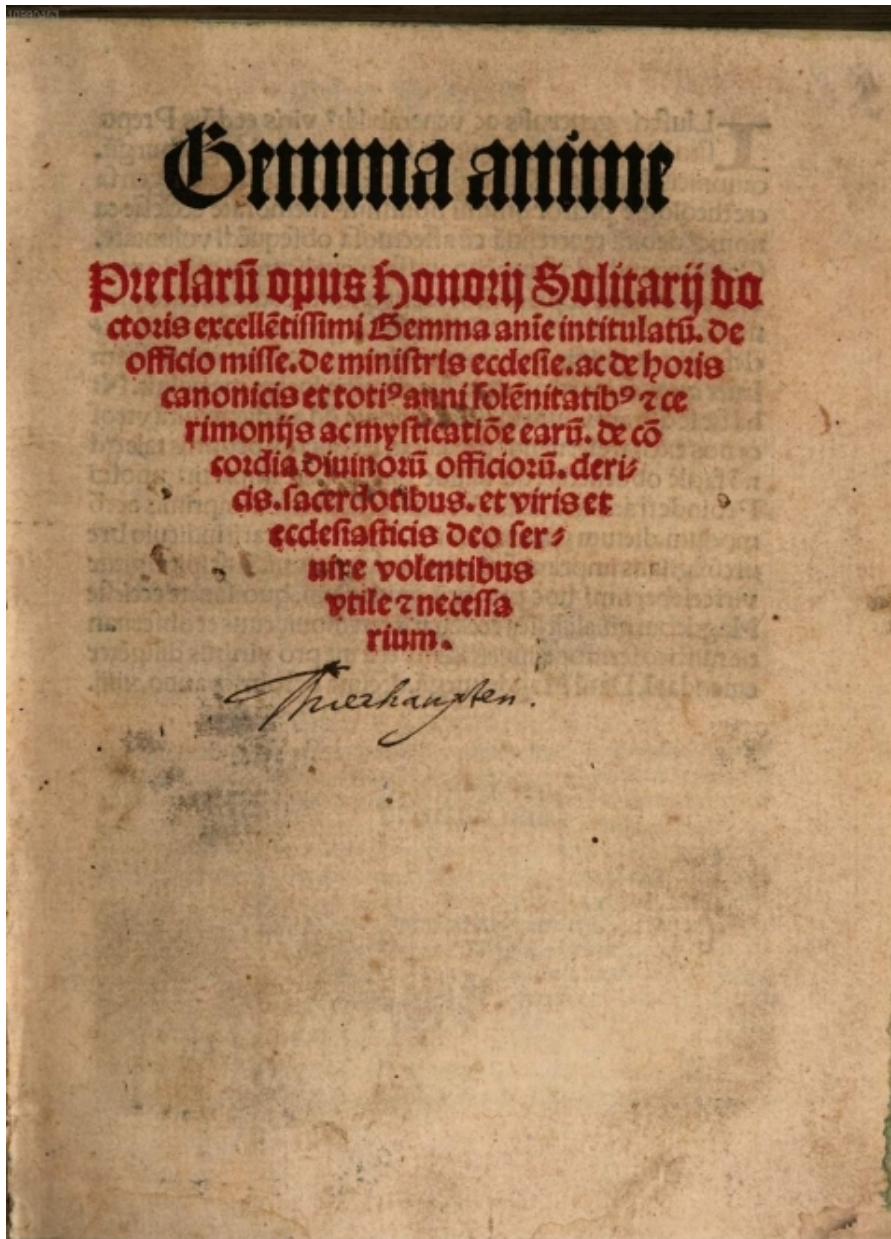 Gemma anime
Preclarū opus Honorij Solitarij do
ctoris excellētissimi Gemma anīe intitulatū. de
officio misse. de ministris ecclesie. ac de horis
canonicis et totiꝰ anni solēnitatibꝰ ⁊ ce
rimonijs ac mysticatiōe earū. de cō
cordia diuinorū officiorū. cleri⸗
cis. sacerdotibus. et viris et
ecclesiasticis deo ser⸗
uire volentibus
vtile ⁊ necessa
rium.
Thierhaupten.